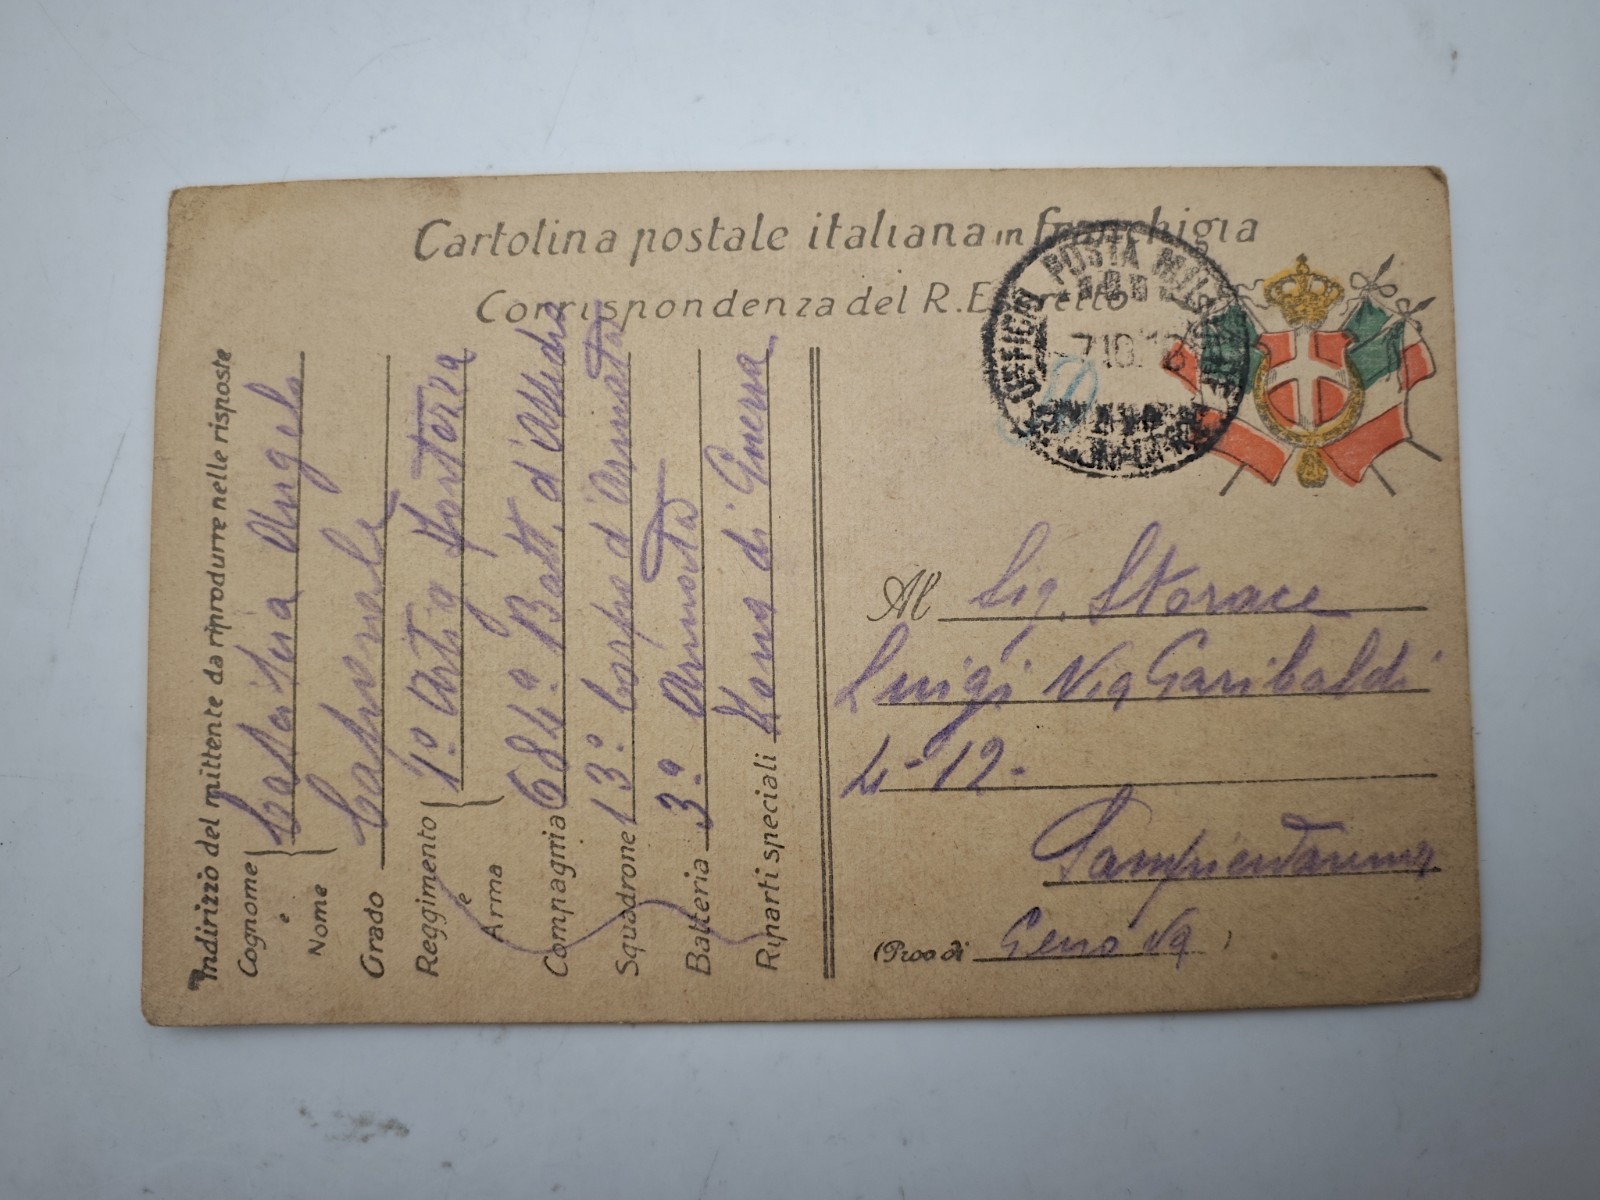 Cartolina postale italiana in franchigia
Corrispondenza del R. Esercito
UFFICIO POSTA MILITARE
7.10.18
Indirizzo del mittente da riprodurre nelle risposte
Cognome e Nome Angelo
Grado Caporale
Reggimento e Arma 1º Artig Fortezza
Compagnia 684ª Batt. d'Assedio
Squadrone 13º Corpo d'Armata
Batteria 3ª Armata
Riparti speciali Zona di Guerra
Al Sig. Storace
Luigi Via Garibaldi
4-12-
Sampierdarena
(Prov di Genova)